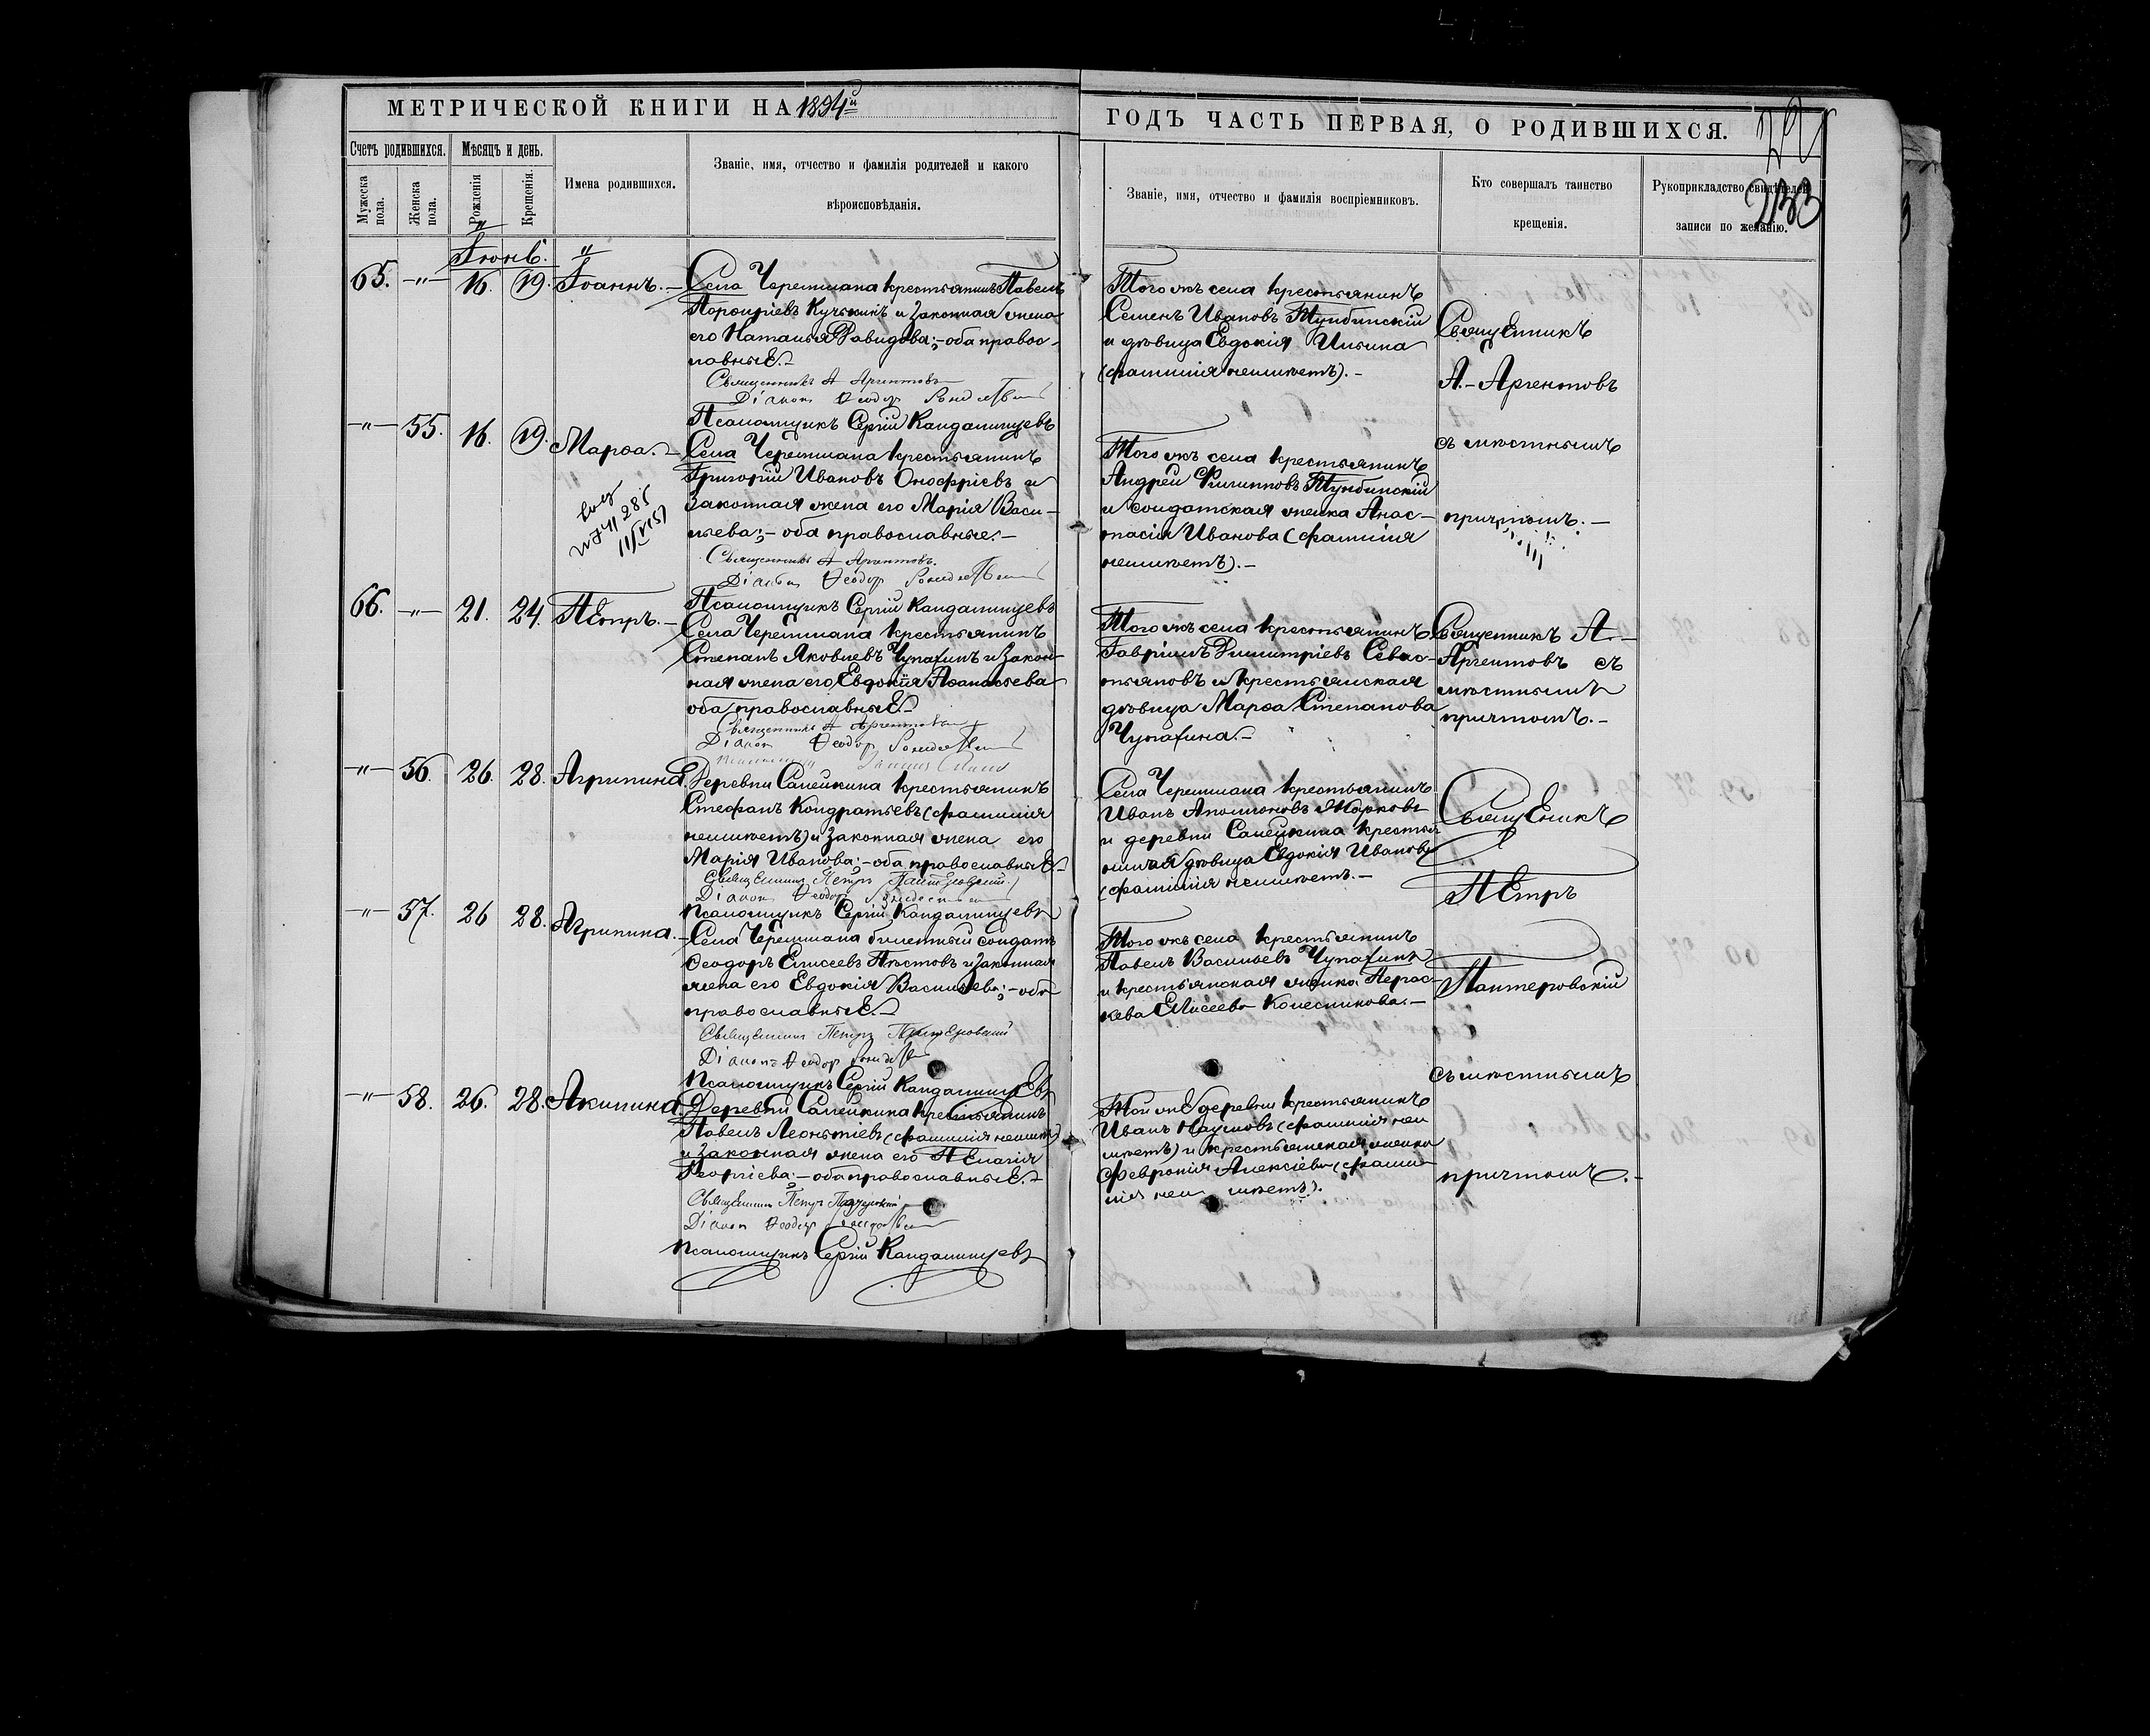 МЕТРИЧЕСКОЙ КНИГИ НА 1894й
ГОДЪ ЧАСТЬ ПЕРВАЯ, О РОДИВШИХСЯ.
233
Счетъ родившихся.
Мужеска пола.
Женска пола.
Мѣсяцъ и день.
Рожденія
Крещенія.
Имена родившихся.
Званіе, имя, отчество и фамилія родителей и какого
вѣроисповѣданія.
Званіе, имя, отчество и фамилія воспріемниковъ.
Кто совершалъ таинство
крещенія.
Рукоприкладство свидѣтелей
записи по желанію.
65. —„— 16. 19. Іоаннъ.—
Села Черемшана крестьянинъ Павелъ
Порфиріевъ и законная жена
его Наталья Давидова;—оба правос-
лавные.—
Священникъ А Аргентовъ
Діаконъ Ѳеодор
Псаломщикъ Сергій Кандалинцевъ
Того жъ села крестьянинъ
Семенъ Ивановъ Тумбинскій
и дѣвица Евдокія Ильина
(фамиліи неимѣетъ).—
Священникъ
А.—Аргентовъ
съ мѣстнымъ
причтомъ.—
—„— 55. 16. 19. Марѳа.—
Села Черемшана крестьянинъ
Григорій Ивановъ Онофріевъ и
законная жена его Марія Васи-
льева;—оба православные.—
Священникъ А Аргентовъ.
Діаконъ Ѳеодор
Псаломщикъ Сергій Кандалинцевъ
Того жъ села крестьянинъ
Андрей Филипповъ Тумбинскій
и солдатская женка Анас-
тасія Иванова (фамиліи
неимѣетъ).—
66. —„— 21. 24. Петръ.—
Села Черемшана крестьянинъ
Степанъ Яковлевъ Чупахинъ и закон-
ная жена его Евдокія Аѳанасьева
оба православные.—
Священникъ А Аргентовъ
Діаконъ Ѳеодор
Того жъ села крестьянинъ
Гавріилъ Димитріевъ Севас-
тьяновъ и крестьянская
дѣвица Марѳа Степанова
Чупахина.—
Священникъ А.—
Аргентовъ съ
мѣстнымъ
причтомъ.—
—„— 56. 26. 28. Агрипина
Деревни Салейкина крестьянинъ
Стефанъ Кондратьевъ (фамиліи
неимѣетъ) и законная жена его
Марія Иванова;—оба православные.—
Священникъ Петръ Пантеровскій
Діаконъ Ѳеодор
Псаломщикъ Сергій Кандалинцевъ
Села Черемшана крестьянинъ
Иванъ Жарковъ
и деревни Салейкина крестья
дѣвица Евдокія Иванова
(фамиліи неимѣетъ.—
Священникъ
Петръ
Пантеровскій
съ мѣстнымъ
причтомъ.—
—„— 57. 26 28. Агрипина.
Села Черемшана билетный солдатъ
Ѳеодоръ Елисеевъ Пѣстовъ и законная
жена его Евдокія Васильева;—оба
православные.—
Священникъ Петръ Пантеровскій
Діаконъ Ѳеодор
Псаломщикъ Сергій Кандалинцевъ
Того жъ села крестьянинъ
Павелъ Васильевъ Чупахинъ
и крестьянская женка Парас-
кева Елисеева Колесникова.—
—„— 58. 26. 28. Акилина.
Деревни Салейкина крестьянинъ
Павелъ Леонтіевъ (фамиліи неимѣетъ)
и законная жена его Пелагія
Георгіева;—оба православные.—
Священникъ Петръ
Діаконъ Ѳеодор
Псаломщикъ Сергій Кандалинцевъ
Той же деревни крестьянинъ
Иванъ Наумовъ (фамиліи неи
мѣетъ) и крестьянская женка
Февронія Алексіева (фами-
ліи неи мѣетъ).